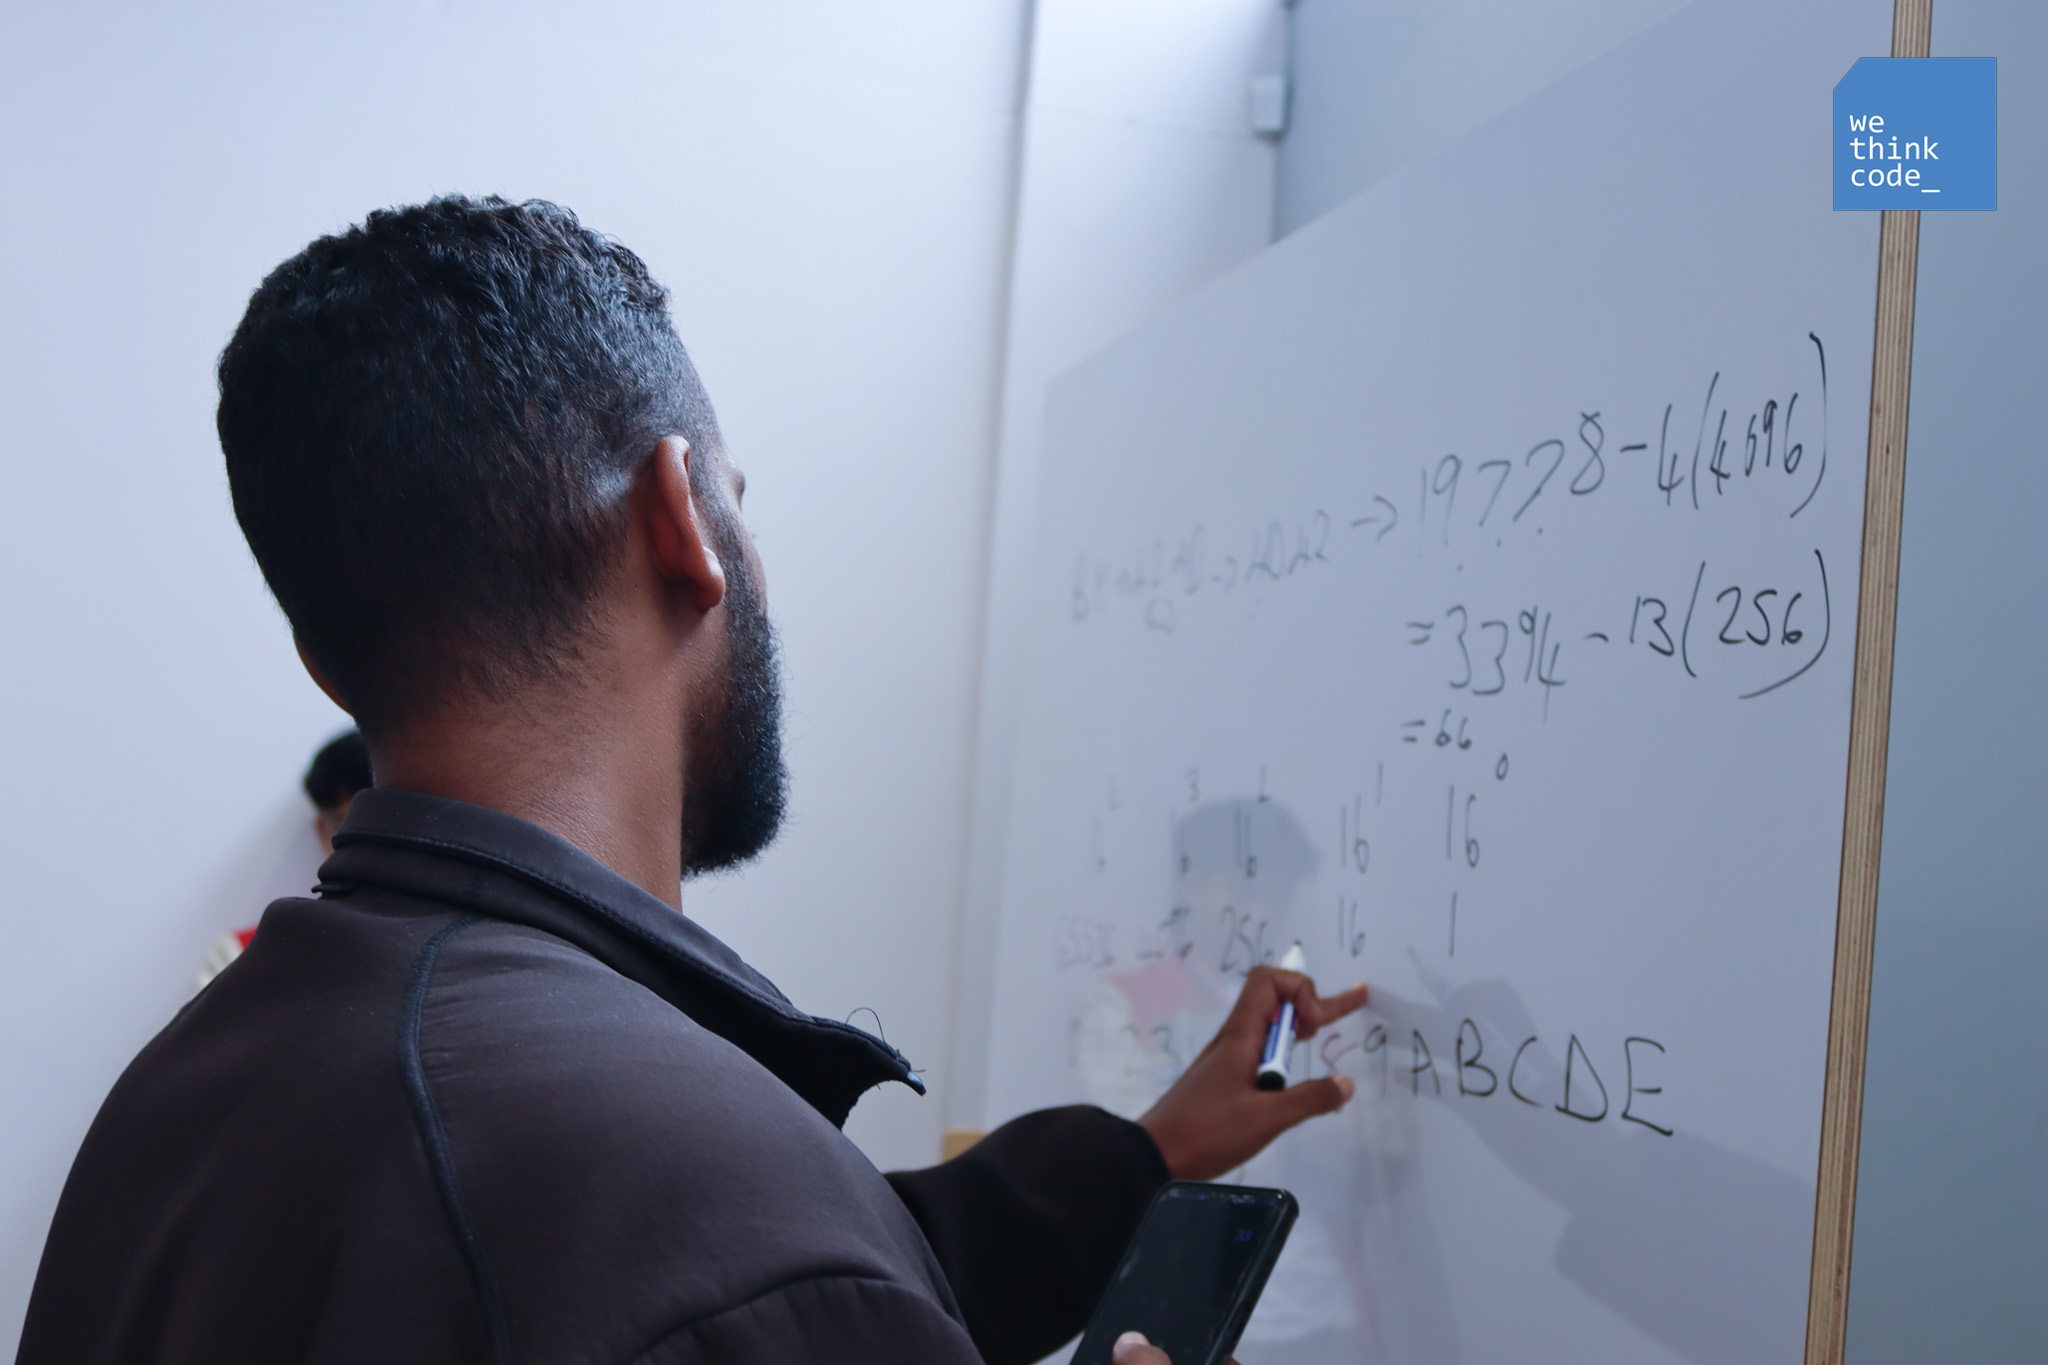 we
think
code_
→ 19778 - 4(4096)
= 3394 - 13(256)
= 66
3 1 0
16 16 16
65536 4096 256 16 1
2 3 8 9 A B C D E